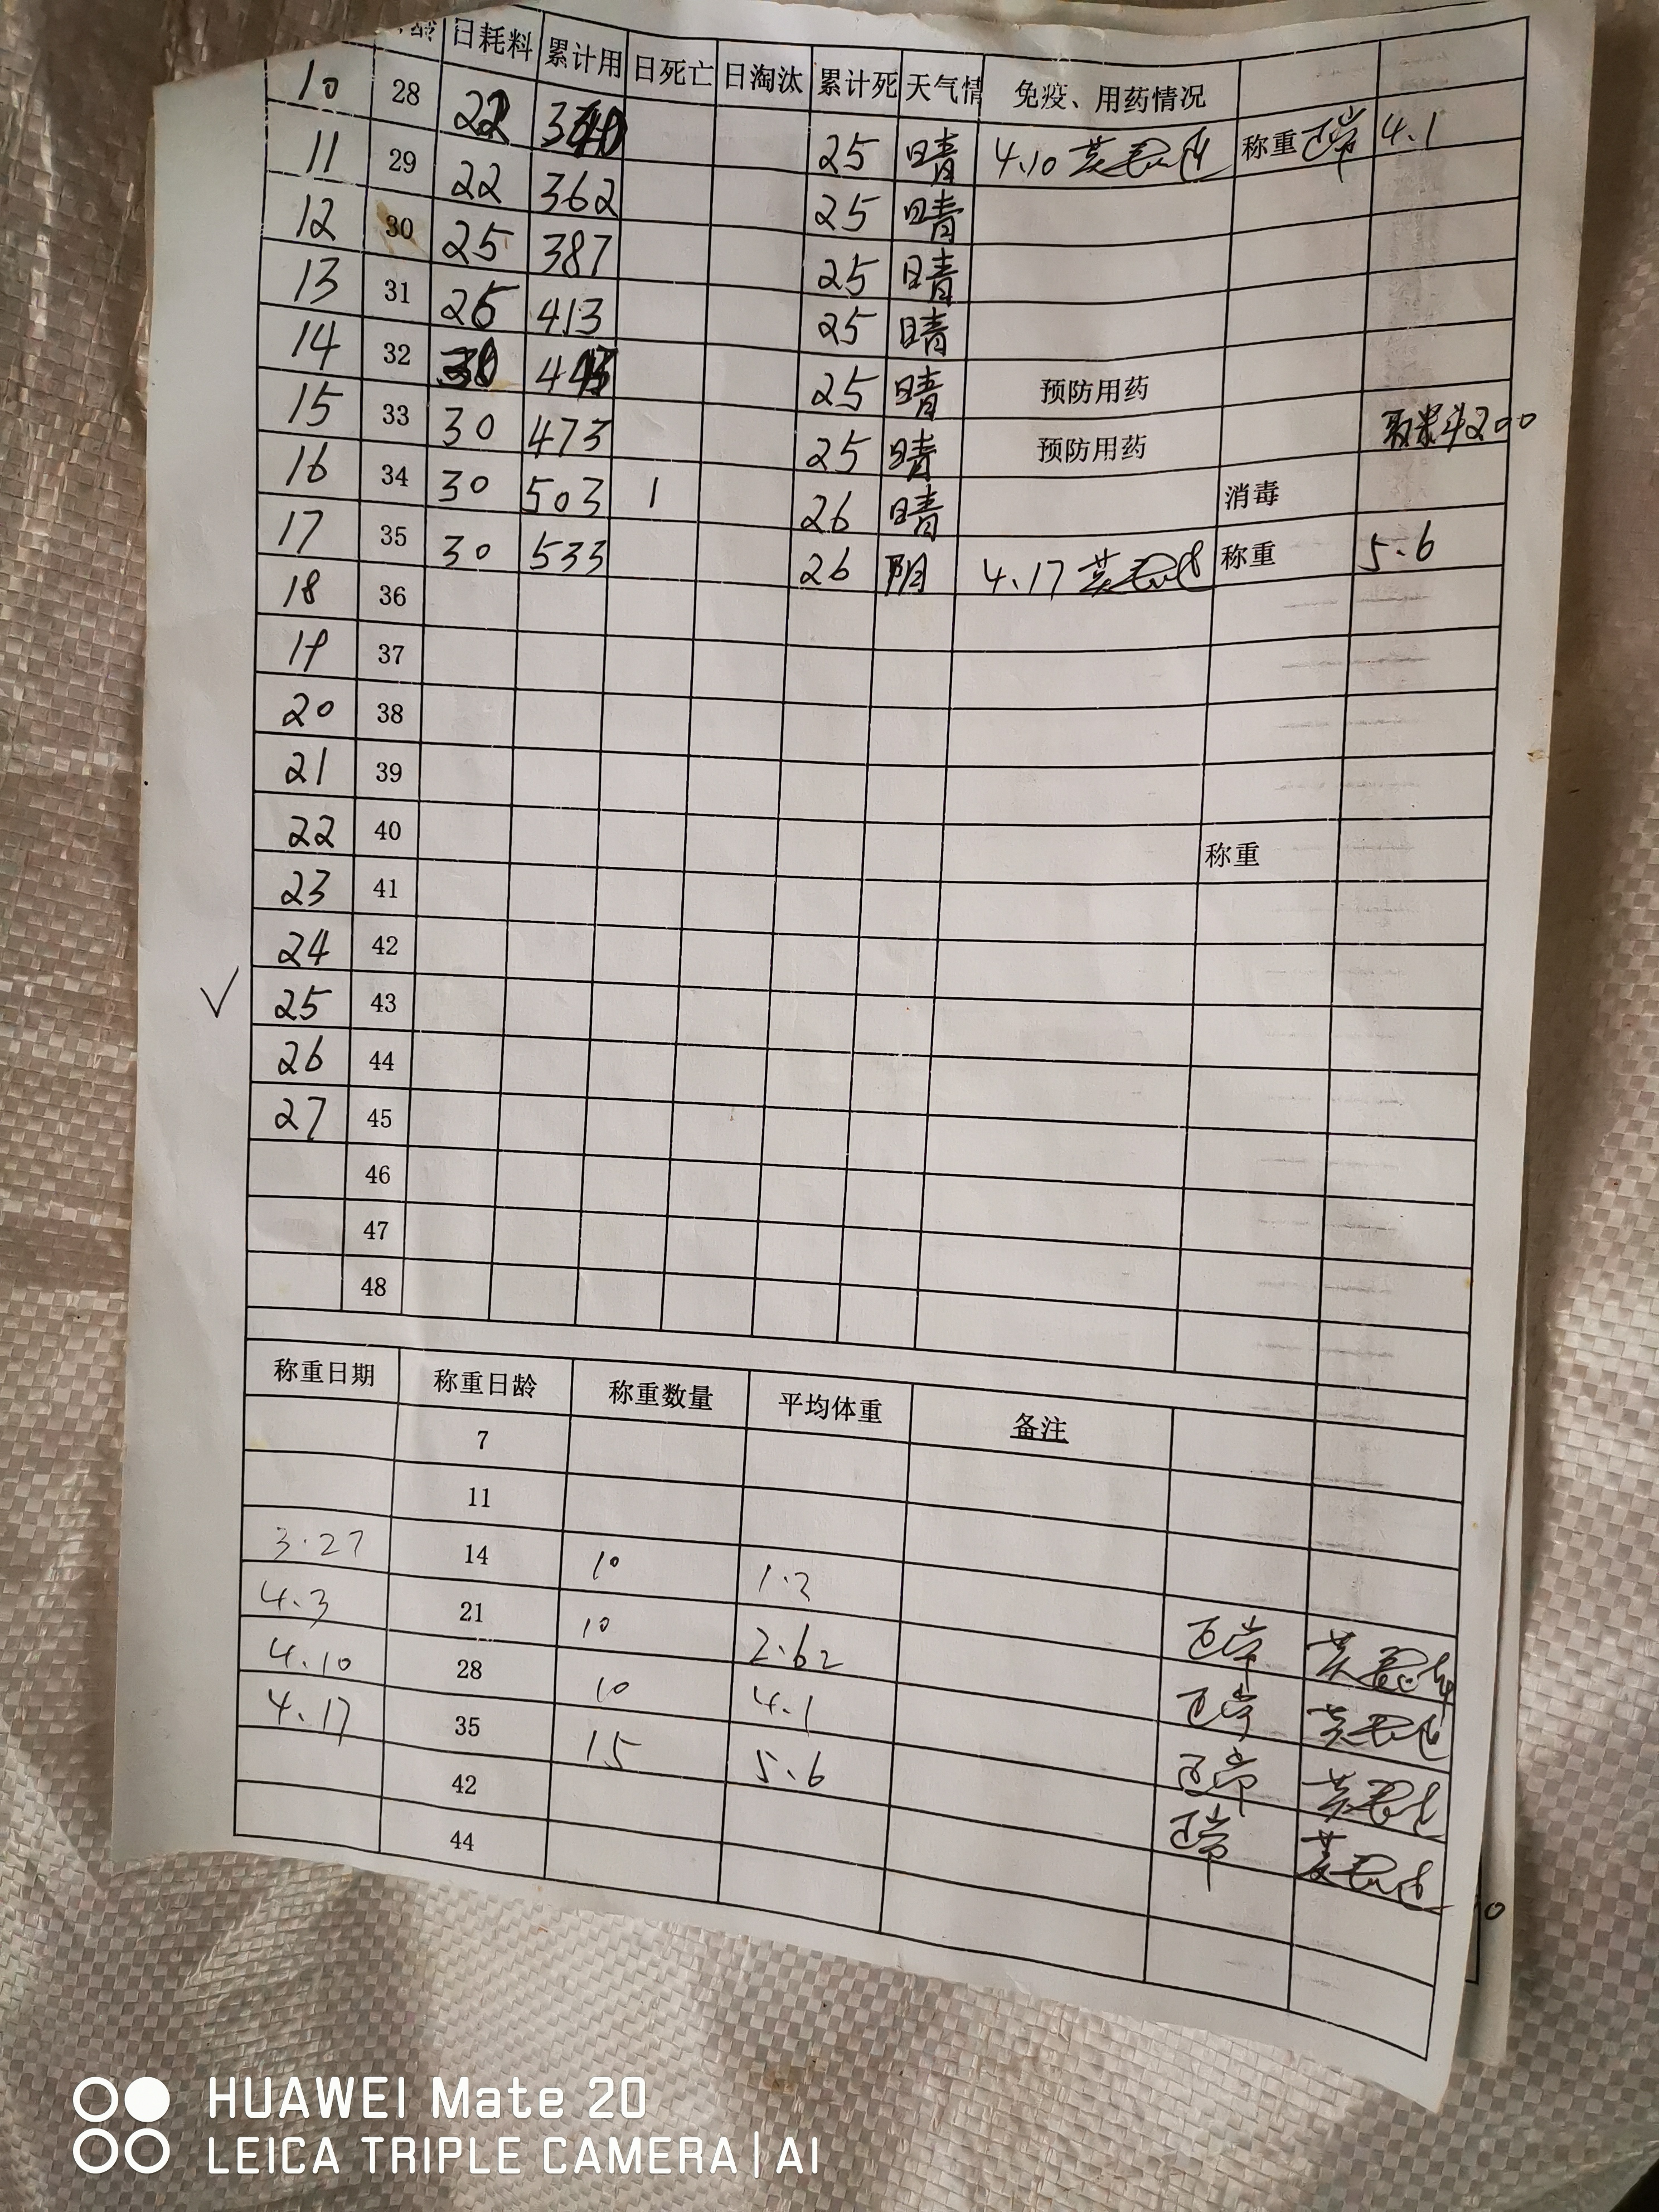 龄 日耗料 累计用 日死亡 日淘汰 累计死 天气情 免疫、用药情况
10 28 22 340 25 晴 4.10 称重 正常 4.1
11 29 22 362 25 晴
12 30 25 387 25 晴
13 31 26 413 25 晴
14 32 30 443 25 晴 预防用药
15 33 30 473 25 晴 预防用药 200
16 34 30 503 1 26 晴 消毒
17 35 30 533 26 阴 4.17 称重 5.6
18 36
19 37
20 38
21 39
22 40 称重
23 41
24 42
√ 25 43
26 44
27 45
46
47
48
称重日期 称重日龄 称重数量 平均体重 备注
7
11
3.27 14 10 1.2
4.3 21 10 2.62 正常
4.10 28 10 4.1 正常
4.17 35 15 5.6 正常
42 正常
44
HUAWEI Mate 20
LEICA TRIPLE CAMERA | AI